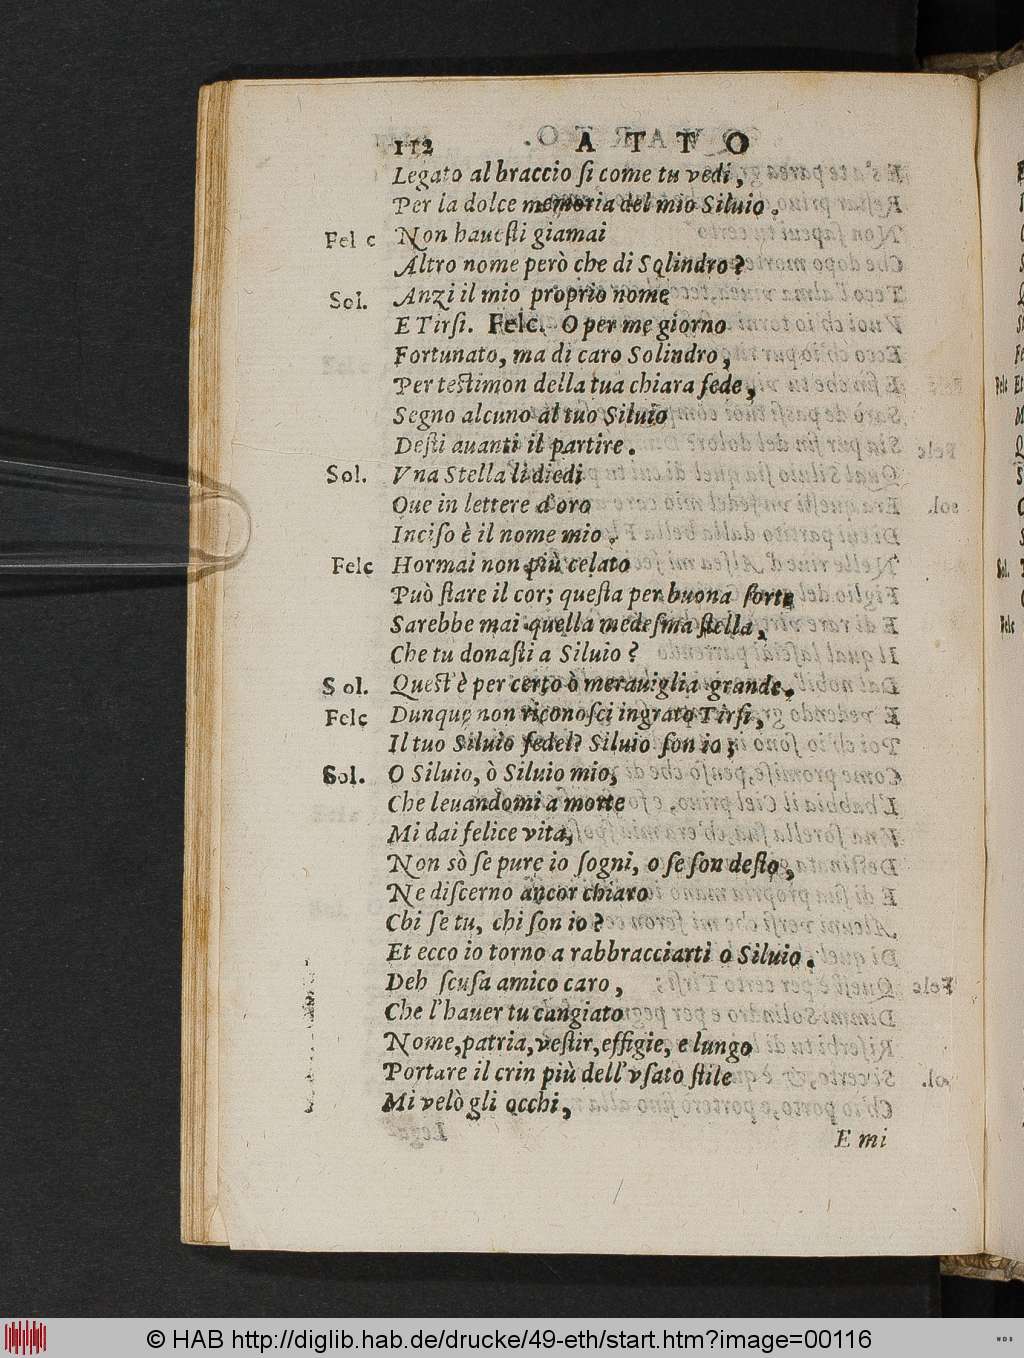 112 ATTO
Legato al braccio ſi come tu vedi,
Per la dolce memoria del mio Siluio.
Felc Non haueſti giamai
Altro nome però che di Solindro?
Sol. Anzi il mio proprio nome
E Tirſi. Felc. O per me giorno
Fortunato, ma di caro Solindro,
Per teſtimon della tua chiara fede,
Segno alcuno al tuo Siluio
Deſti auanti il partire.
Sol. Vna Stella li diedi
Oue in lettere d'oro
Inciſo è il nome mio.
Felc Hormai non più celato
Può ſtare il cor; queſta per buona ſorte
Sarebbe mai quella medeſma ſtella,
Che tu donaſti a Siluio?
Sol. Queſt'è per certo ò merauiglia grande.
Felc Dunque non riconoſci ingrato Tirſi,
Il tuo Siluio fedel? Siluio ſon io;
Sol. O Siluio, ò Siluio mio,
Che leuandomi a morte
Mi dai felice vita,
Non sò ſe pure io ſogni, o ſe ſon deſto,
Ne diſcerno ancor chiaro
Chi ſe tu, chi ſon io?
Et ecco io torno a rabbracciarti o Siluio.
Deh ſcuſa amico caro,
Che l'hauer tu cangiato
Nome, patria, veſtir, effigie, e lungo
Portare il crin più dell'vſato ſtile
Mi velò gli occhi,
E mi
© HAB http://diglib.hab.de/drucke/49-eth/start.htm?image=00116